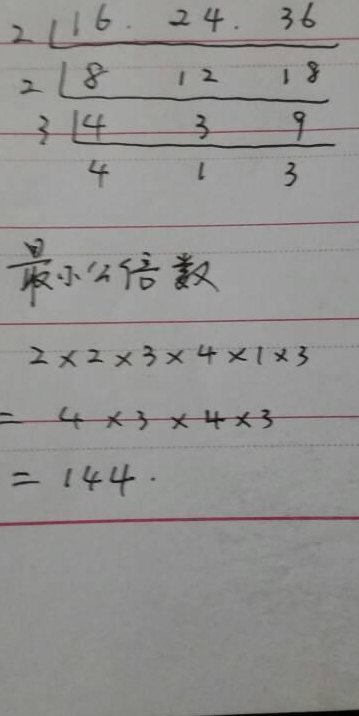 2 16. 24. 36
2 8 12 18
3 4 3 9
4 1 3
最小公倍数
2×2×3×4×1×3
= 4×3×4×3
= 144.